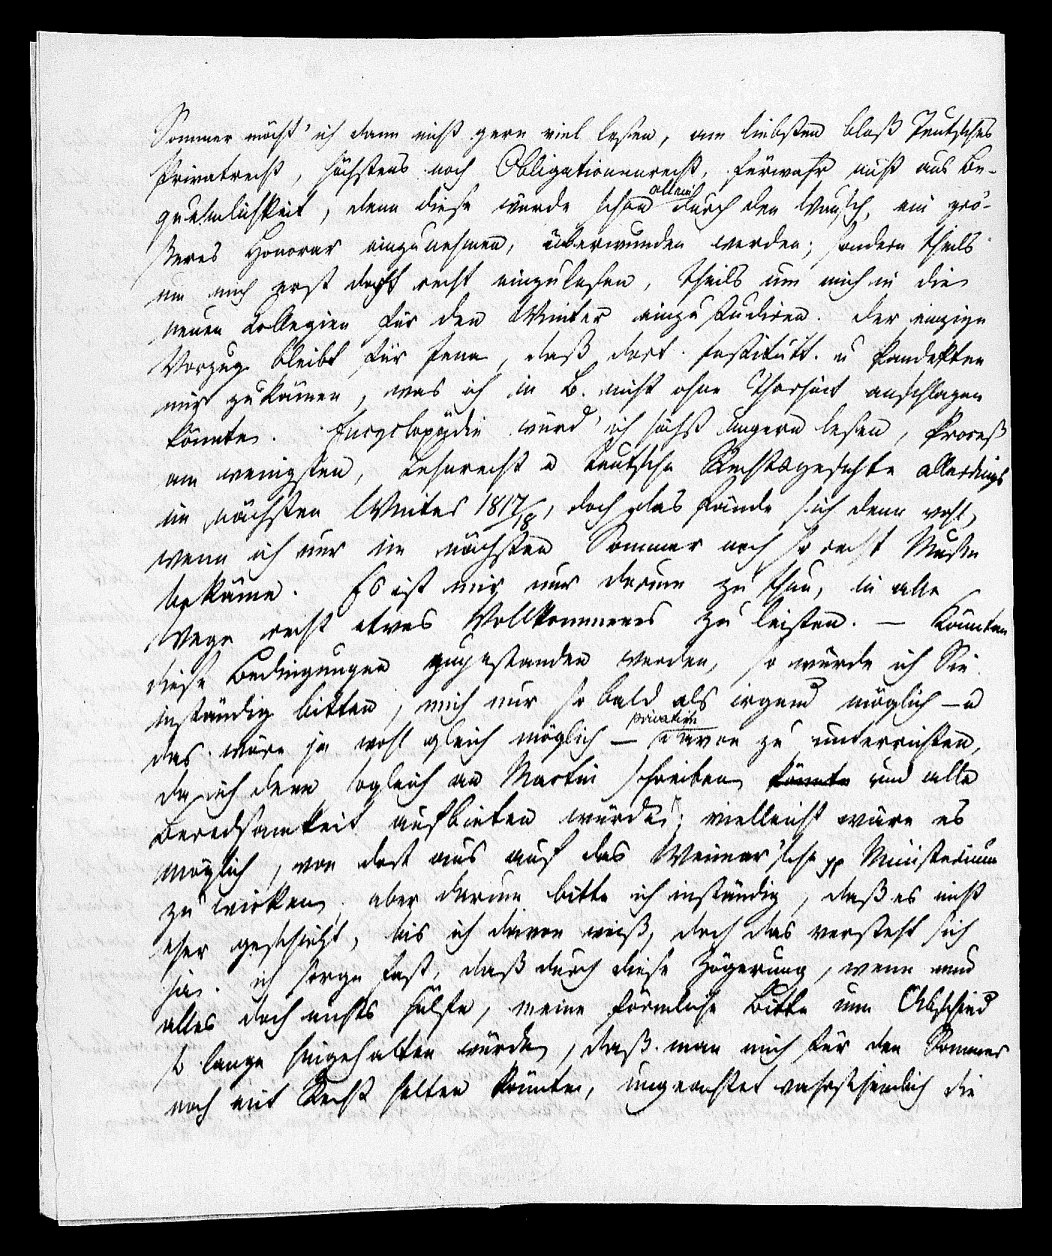 Sommer möcht' ich dann nicht gern viel lesen, am liebsten bloß Teutsches
Privatrecht, höchstens noch Obligationenrecht, fürwahr nicht aus Be-
quemlichkeit, denn diese würde schon allein durch den Wunsch, ein grö-
ßeres Honorar einzunehmen, überwunden werden; sondern theils
um mich erst dort recht einzulesen, theils um mich in die
neuen Collegien für den Winter einzustudiren. Der einzige
Vorzug bleibt für Jena, daß dort Institutt. u Pandekten
mir zukämen, was ich in B. nicht ohne Thorheit anschlagen
könnte. Encyclopädie würd' ich höchst ungern lesen, Proceß
am wenigsten, Lehnrecht u teutsche Rechtsgeschichte allerdings
im nächsten Winter 1817/18, doch das fände sich denn wohl,
wenn ich nur im nächsten Sommer noch so recht Muße
bekäme. Es ist mir nur darum zu thun, in alle
Wege recht etwas Vollkommenes zu leisten. — Könnten
diese Bedingungen zugestanden werden, so würde ich Sie
inständig bitten, mich nur so bald als irgend möglich — u
das wäre ja wohl gleich möglich — privatim davon zu unterrichten,
da ich denn sogleich an Martin schreiben könnte und alle
Beredsamkeit aufbieten würde; vielleicht wäre es
möglich, von dort aus auf das Weimar'sche pp Ministerium
zu wirken, aber darum bitte ich inständig, daß es nicht
eher geschieht, bis ich davon weiß, doch das versteht sich
ja. ich sorge fast, daß durch diese Zögerung, wenn und
alles doch nichts hülfe, meine förmliche Bitte um Abschied
so lange hingehalten würde, daß man mich für den Sommer
noch mit Recht halten könnte, ungeachtet wahrscheinlich die